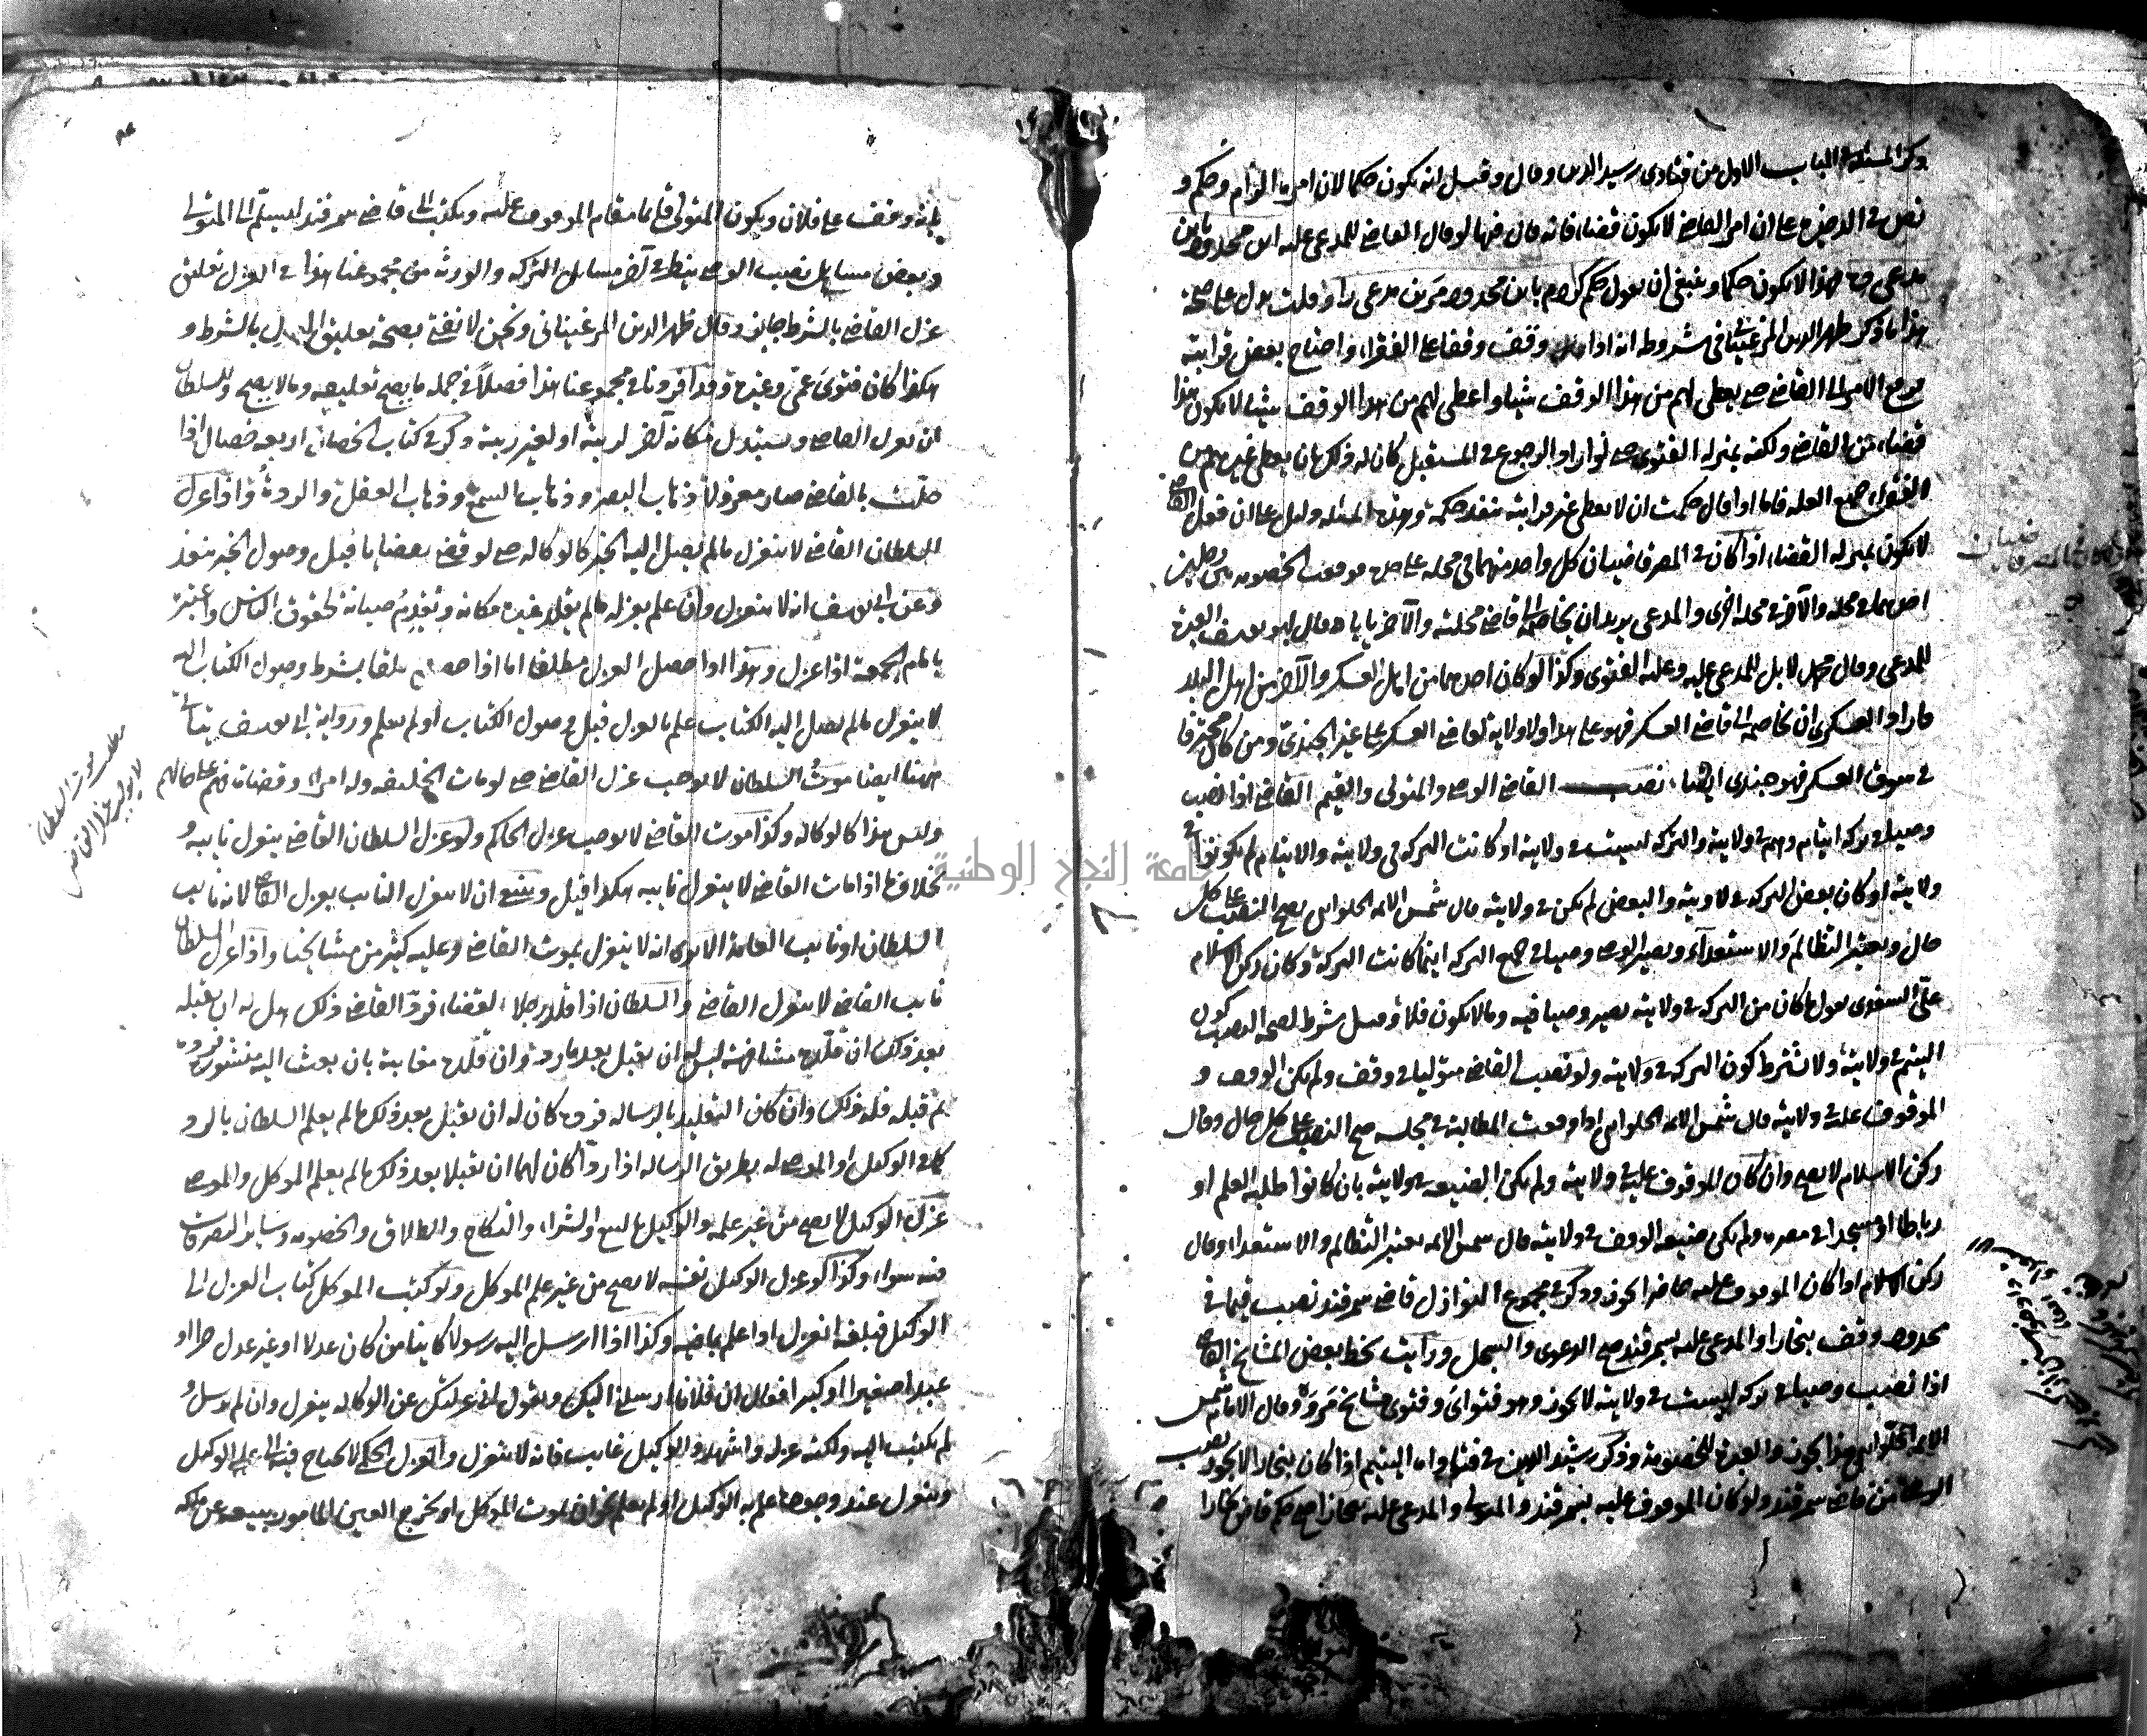 ذكر المسئلة في الباب الاول من فتاوى رشيد الدين وقال وقيل انه يكون حكما لان امره الزام وحكم و
نص في الذخيرة على ان امر القاضي لا يكون قضاء فانه قال فيها لو قال القاضي للمدعى عليه اين محدود باين
مدعى ده هذا لا يكون حكما وينبغي ان يقول حكم كردم باين محدود مرين مدعى را وقلت يدل على صحة
هذا ما ذكر ظهير الدين المرغيناني في شروطه انه اذا وقف وقفا على الفقراء واحتاج بعض قرابته
فرفع الامر الى القاضي حتى يعطي لهم من هذا الوقف شيئا واعطى لهم من هذا الوقف شيئا لا يكون هذا
قضاء من القاضي ولكنه بمنزلة الفتوى حتى لو اراد الرجوع في المستقبل كان له ذلك بان يعطي غيرهم من
الفقراء جميع الغلة فاما اذا قال حكمت ان لا يعطي غير قرابته نفذ حكمه وهذه المسئلة دليل على ان فعل القاضي
لا يكون بمنزلة القضاء اذا كان في المصر قاضيان كل واحد منهما في محلة على حدة فوقعت الخصومة بين رجلين
احدهما في محلة والآخر في محلة اخرى والمدعي يريد ان يخاصمه الى قاضي محلته والآخر يأباه قال ابو يوسف العبرة
للمدعي وقال محمد لا بل للمدعى عليه وعليه الفتوى وكذا لو كان احدهما من اهل العسكر والآخر من اهل البلد
فاراد العسكري ان يخاصمه الى قاضي العسكر فهو على هذا ولا ولاية لقاضي العسكر على غير الجندي ومن كان محترفا
في سوق العسكر فهو جندي ايضا نصب القاضي الوصي والمتولي والقيم القاضي اذا نصب
وصيا في تركة ايتام وهم في ولايته والتركة ليست في ولايته او كانت التركة في ولايته والايتام لم يكونوا في
ولايته او كان بعض التركة في ولايته والبعض لم يكن في ولايته قال شمس الائمة الحلواني يصح النصب على كل
حال ويعتبر التظالم والاستعداء ويصير الوصي وصيا في جميع التركة اينما كانت التركة وكان ركن الاسلام
علي السغدي يقول ما كان من التركة في ولايته يصير وصيا فيه وما لا يكون فلا وقيل شرط لصحة النصب كون
اليتيم في ولايته ولا يشترط كون التركة في ولايته ولو نصب القاضي متوليا في وقف ولم يكن الوقف و
الموقوف عليه في ولايته قال شمس الائمة الحلواني اذا وقعت المطالبة في مجلسه صح النصب على كل حال وقال
ركن الاسلام لا يصح وان كان الموقوف عليه في ولايته ولم يكن الضيعة في ولايته بان كانوا طلبة العلم او
رباطا او مسجدا في مصره ولم يكن ضيعة الوقف في ولايته قال شمس الائمة يعتبر التظالم والاستعداء وقال
ركن الاسلام اذا كان الموقوف عليه حاضرا يجوز وذكر في مجموع النوازل قاضي سمرقند نصب قيما في
محدود وقف ببخارا والمدعى عليه بسمرقند صح الدعوى والسجل ورأيت بخط بعض المشايخ القاضي
اذا نصب وصيا في تركة ليست في ولايته لا يجوز وهو فتواي وفتوى مشايخ مرو وقال الامام شمس
الائمة الحلواني هذا يجوز والعبرة للخصومة وذكر رشيد الدين في فتاواه اليتيم اذا كان ببخارا لا يجوز نصب
الوصي من قاضي سمرقند ولو كان الموقوف عليه بسمرقند والمتولي والمدعى عليه ببخارا صح حكم قاضي بخارا
بانه وقف على فلان ويكون المتولي قائما مقام الموقوف عليه ويكتب الى قاضي سمرقند ليسلم الى المتولي
وبعض مسائل نصب الوصي ينظر في آخر مسائل التركة والورثة من مجموعنا هذا في العزل تعليق
عزل القاضي بالشرط جايز وقال ظهير الدين المرغيناني ونحن لا نفتي بصحة تعليق العزل بالشرط و
هكذا كان فتوى عمي وغيره وقد افردنا في مجموعنا هذا فصلا في جملة ما يصح تعليقه وما لا يصح وللسلطان
ان يعزل القاضي ويستبدل مكانه آخر لريبة او لغير ريبة وذكر في كتاب الخصاف اربعة خصال اذا
حلت بالقاضي صار معزولا ذهاب البصر وذهاب السمع وذهاب العقل والردة واذا عزل
السلطان القاضي لا ينعزل ما لم يصل اليه الخبر كالوكالة حتى لو قضى بعضايا قبل وصول الخبر ينفذ
وعن ابي يوسف انه لا ينعزل وان علم بعزله ما لم يقلد غيره مكانه وتقديم صيانة لحقوق الناس واعتبر
بامام الجمعة اذا عزل وهذا اذا حصل العزل مطلقا اما اذا حصل معلقا بشرط وصول الكتاب اليه
لا ينعزل ما لم يصل اليه الكتاب علم بالعزل قبل وصول الكتاب او لم يعلم ورواية ابي يوسف يتأتى
ههنا ايضا موت السلطان لا يوجب عزل القاضي حتى لو مات الخليفة وله امراء وقضاة فهم على حالهم
وليس هذا كالوكالة وكذا موت القاضي لا يوجب عزل الحاكم ولو عزل السلطان القاضي ينعزل نايبه و
بخلاف ما اذا مات القاضي لا ينعزل نايبه هكذا قيل وينبغي ان لا ينعزل النايب بعزل القاضي لانه نايب
السلطان او نايب العامة الا يرى انه لا ينعزل بموت القاضي وعليه كثير من مشايخنا واذا عزل السلطان
نايب القاضي لا ينعزل القاضي والسلطان اذا قلد رجلا القضاء فرد القاضي ذلك هل له ان يقبله
بعد ذلك ان قلده مشافهة ليس له ان يقبل بعد ما رده وان قلده مغايبة بان بعث اليه منشورا فرده
ثم قبله فله ذلك وان كان التقليد بالرسالة فرده كان له ان يقبل بعد ذلك ما لم يعلم السلطان بالرد
كما في الوكيل او الموصى له بطريق الرسالة اذا ردا كان لهما ان يقبلا بعد ذلك ما لم يعلم الموكل والموصي
عزل الوكيل لا يصح من غير علمه والوكيل بالبيع والشراء والنكاح والطلاق والخصومة وساير التصرفات
فيه سواء وكذا لو عزل الوكيل نفسه لا يصح من غير علم الموكل ولو كتب الموكل كتاب العزل الى
الوكيل فبلغه انعزل اذا علم بما فيه وكذا اذا ارسل اليه رسولا كاينا من كان عدلا او غير عدل حرا او
عبدا صغيرا او كبيرا فقال ان فلانا ارسلني اليك ويقول اني عزلتك عن الوكالة ينعزل وان لم يرسل و
لم يكتب اليه ولكنه عزله واشهد والوكيل غايب فانه لا ينعزل والعزل الحكمي لا يحتاج فيه الى علم الوكيل
وينعزل عند وجوده علم به الوكيل او لم يعلم نحو ان يموت الموكل او يخرج العين المأمور ببيعه عن ملكه
موت السلطان
لا يوجب عزل القاضي
جامعة النجاح الوطنية